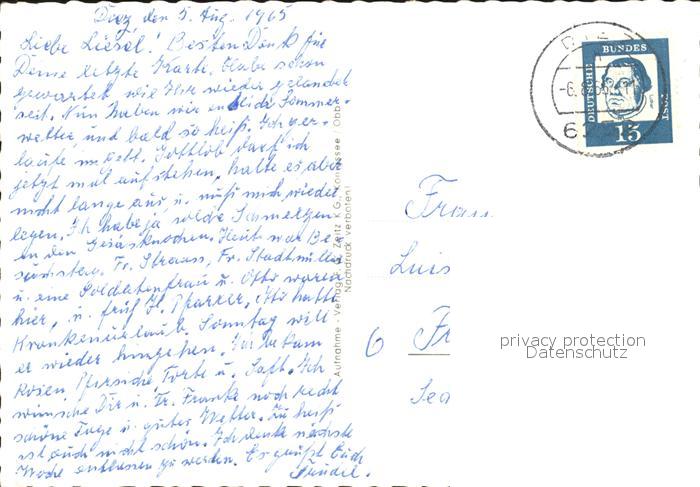 Diez den 5. Aug. 1965
Liebe Liesel! Besten Dank für
Deine letzte Karte. Habe schon
gewartet wie Ihr wieder gelandet
seit. Nun haben wir endlich Sommer-
wetter und bald so heiß. Ich ver-
laufe im Bett. Gottlob darf ich
jetzt mal aufstehen, halte es aber
nicht lange aus u. muß mich wieder
legen. Ich habe ja solche Schmerzen
in den Gesäsknochen. Heut war Be-
such Fr. Strauss, Fr. Stadtmüller
u. eine Soldatenfrau u. Otto waren
hier, u. früh H. Pfarrer. Otto hatte
Krankenurlaub. Sonntag will
er wieder hingehen. Ich bekam
Rosen, Pfirsiche, Torte u. Saft. Ich
wünsche Dir u. Fr. Franke noch recht
schöne Tage u. gutes Wetter. Zu heiß
ist auch nicht schön. Ich denke nächste
Woche entlassen zu werden. Es grüßt Euch
Aufnahme - Verlag Zeitz
Nachdruck verboten!
DEUTSCHE BUNDES POST
15
Frau
Luis
6 Fr
privacy protection
Datenschutz